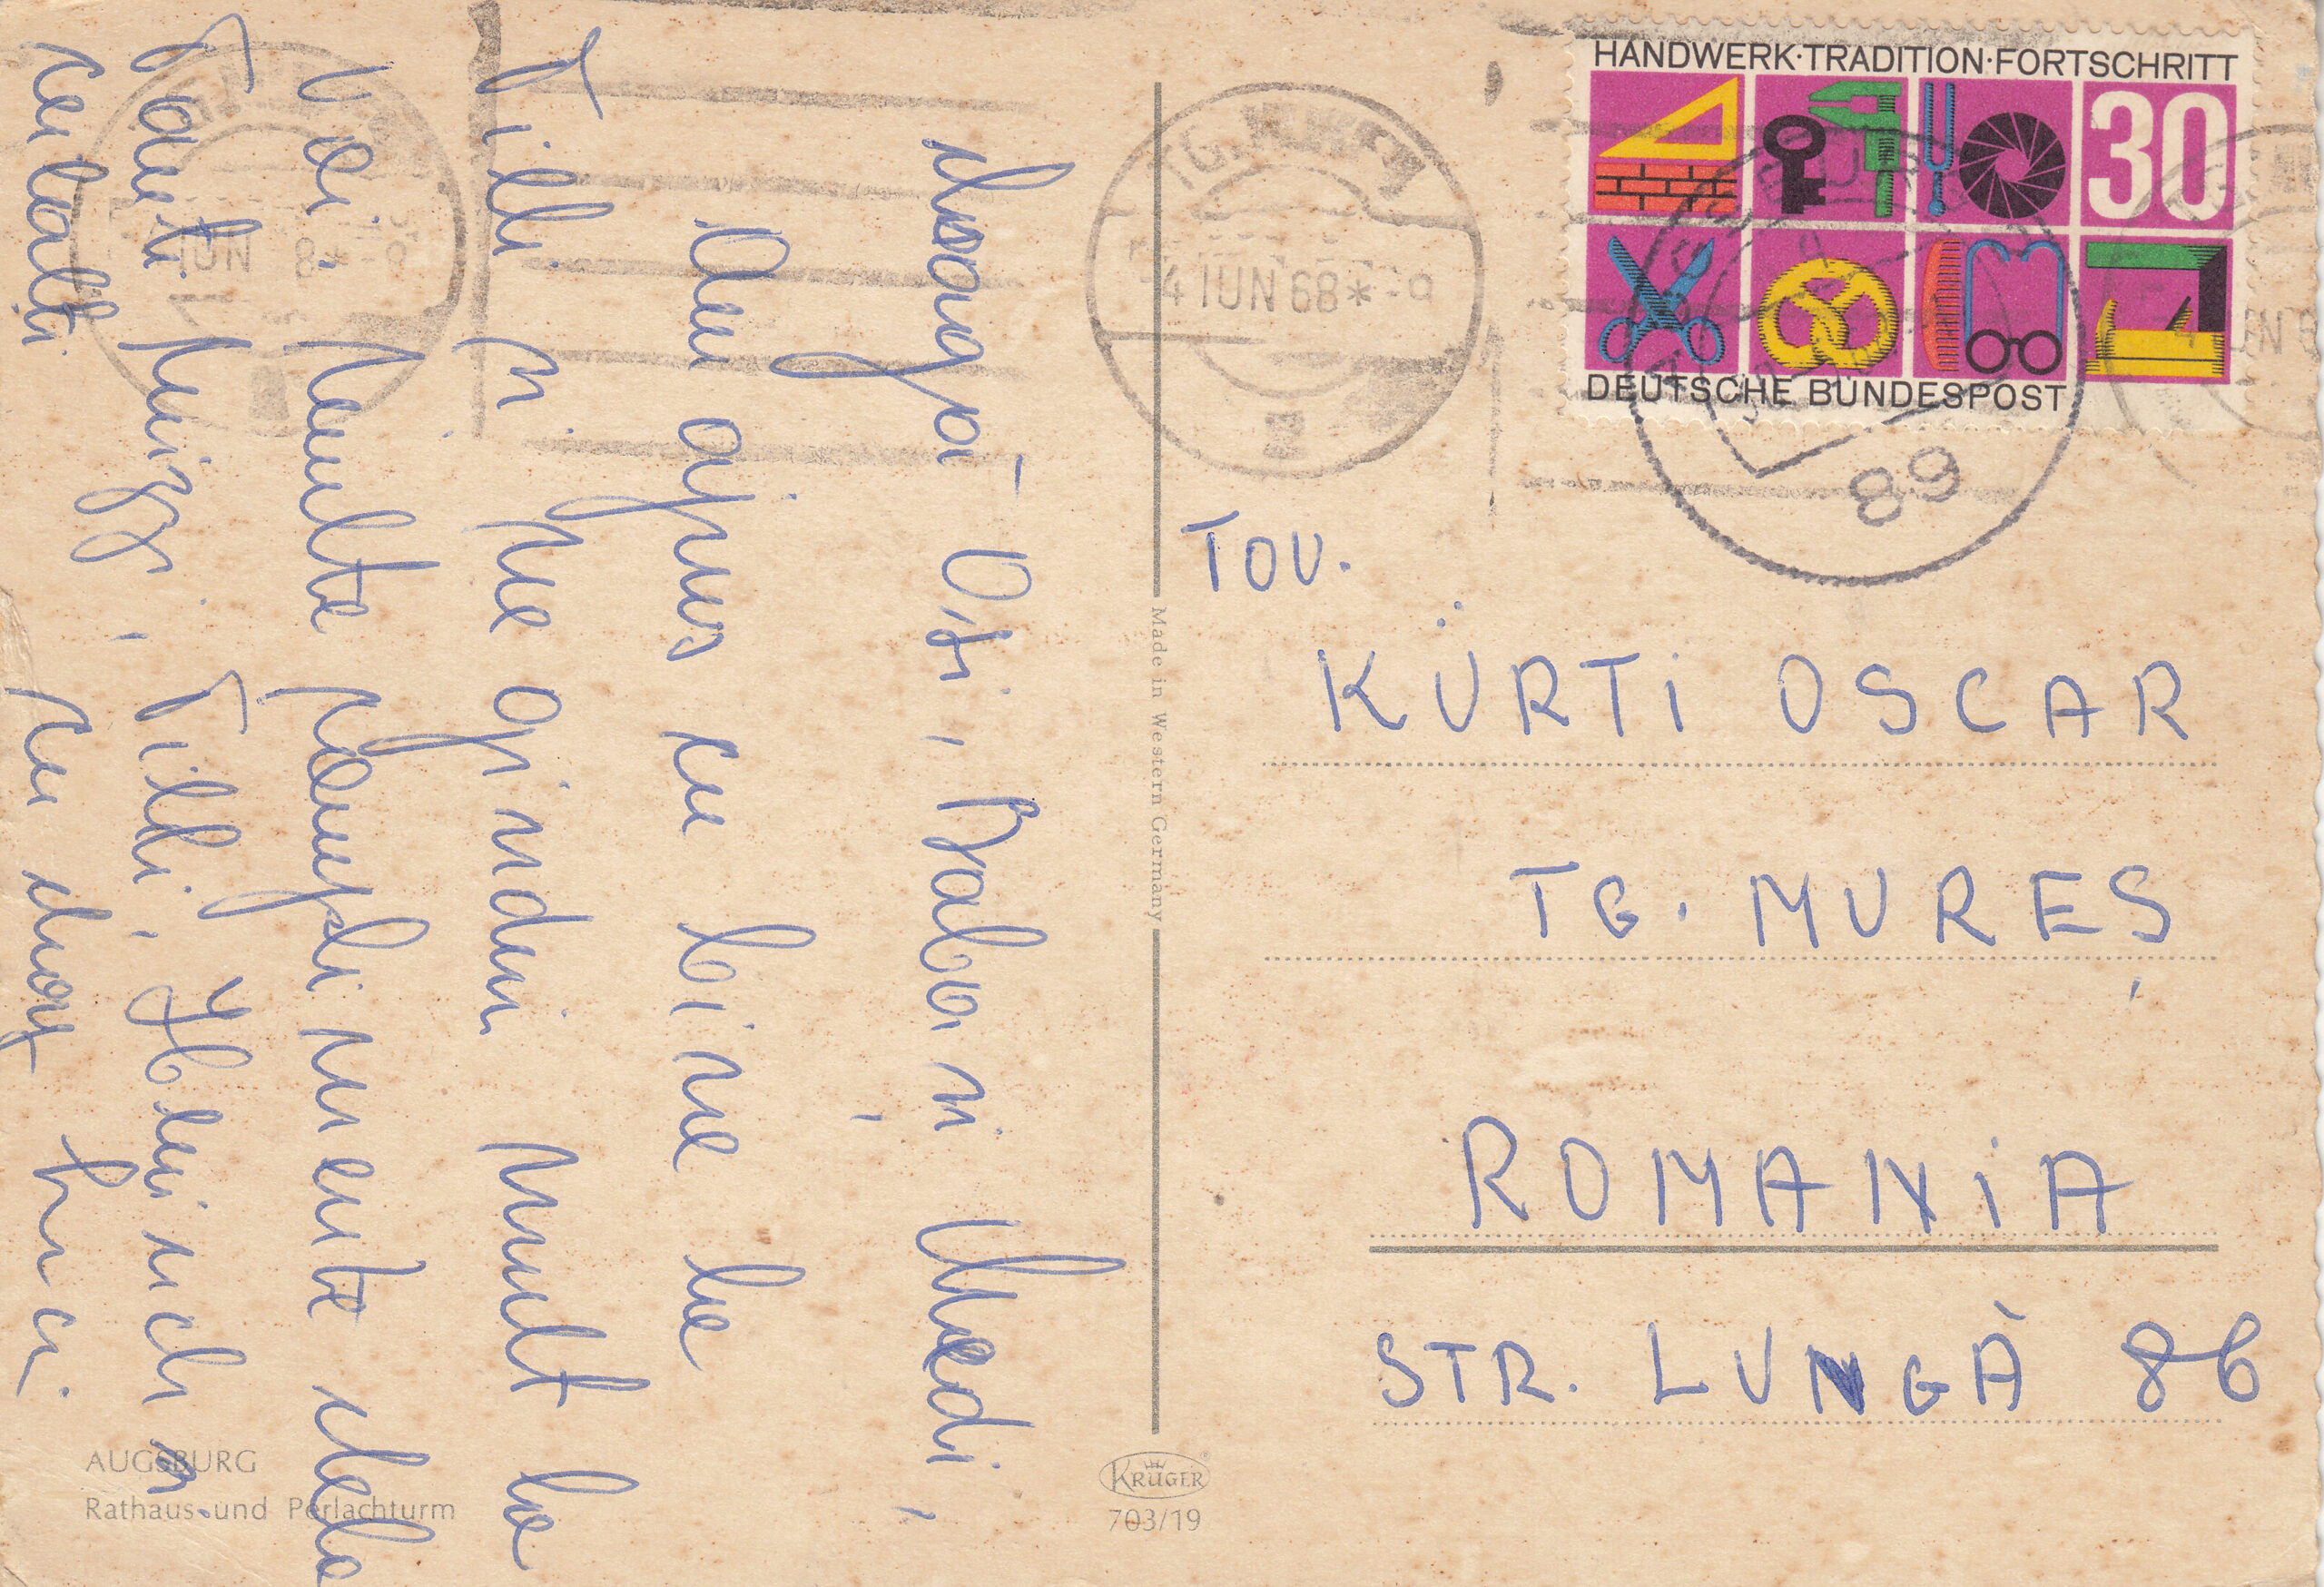 HANDWERK·TRADITION·FORTSCHRITT
30
DEUTSCHE BUNDESPOST
TG. MUREȘ
4 IUN 68
89
Tov.
KÜRTI OSCAR
TG. MUREȘ
ROMANIA
STR. LUNGĂ 86
Made in Western Germany
KRÜGER
703/19
AUGSBURG
Rathaus und Perlachturm
Dragă Osi, și Medi,
Am ajuns cu bine la
Tilli și ne gîndim mult la
Voi. Multe complimente dela
Tanti Tilli, Heinrich și
ceilalți cu drag